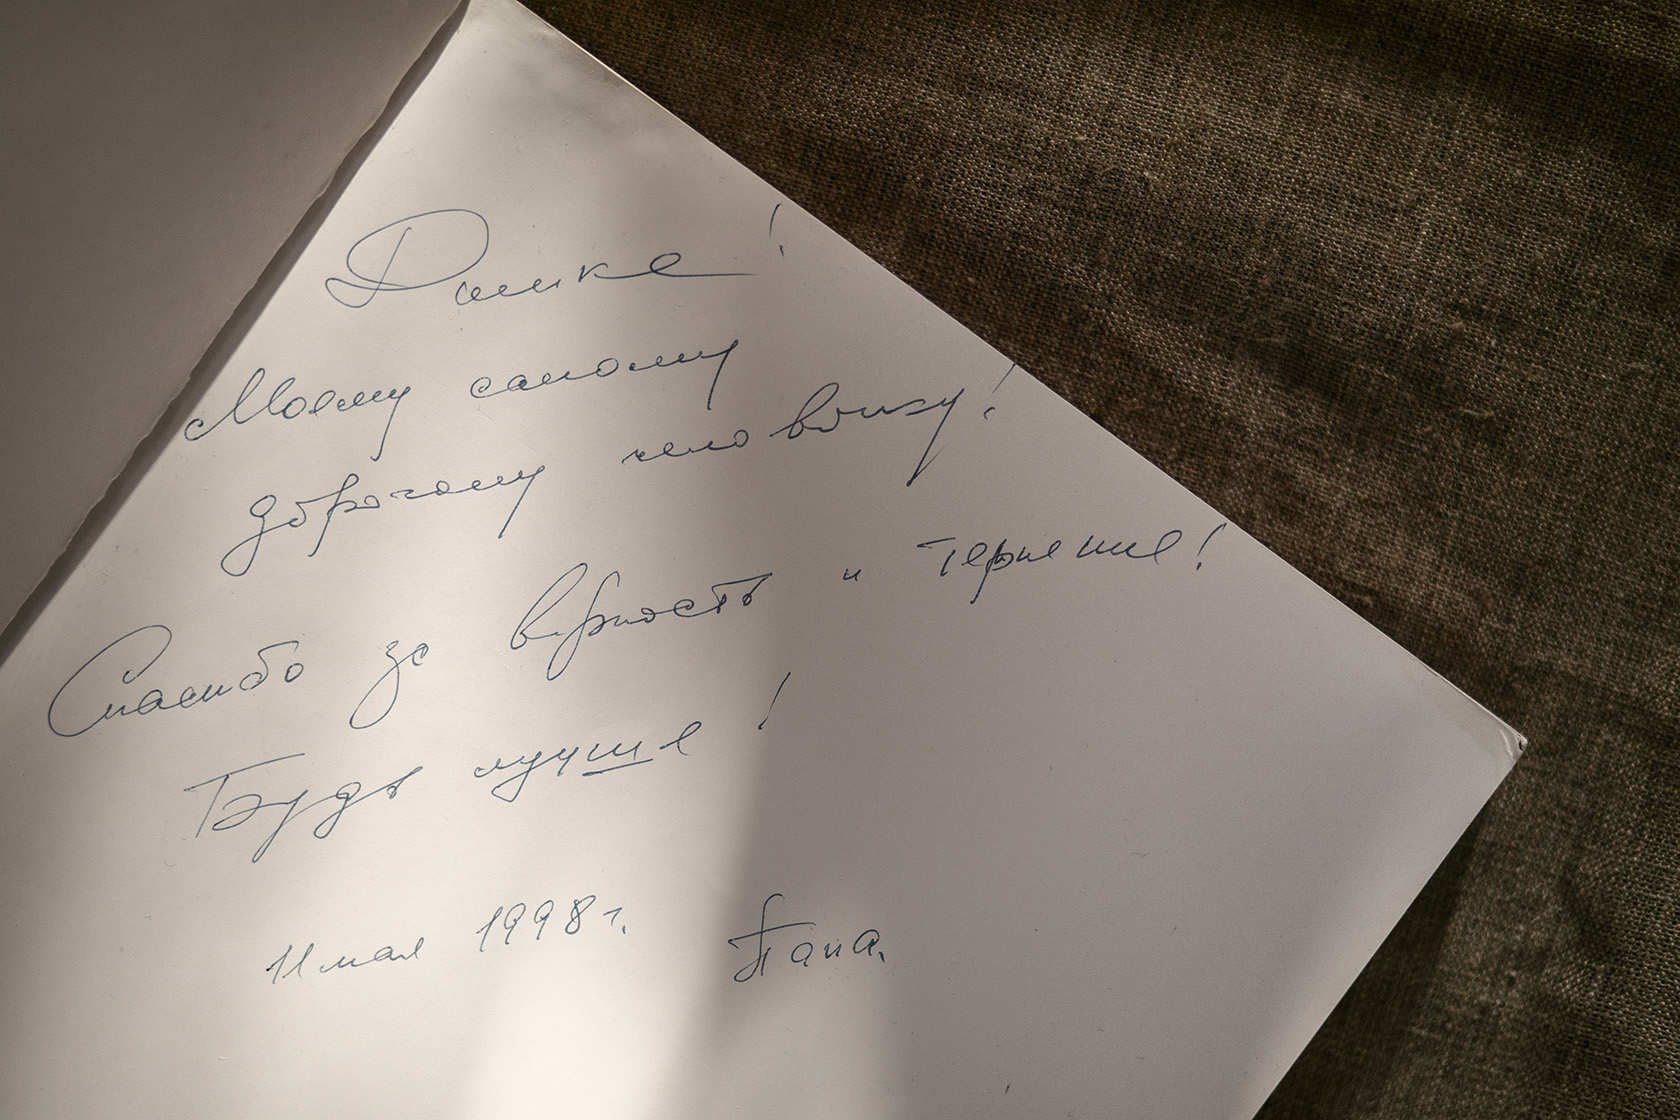 Моему самому
дорогому человеку!
Спасибо за верность и терпение!
Будь лучше!
11 мая 1998 г. Папа.